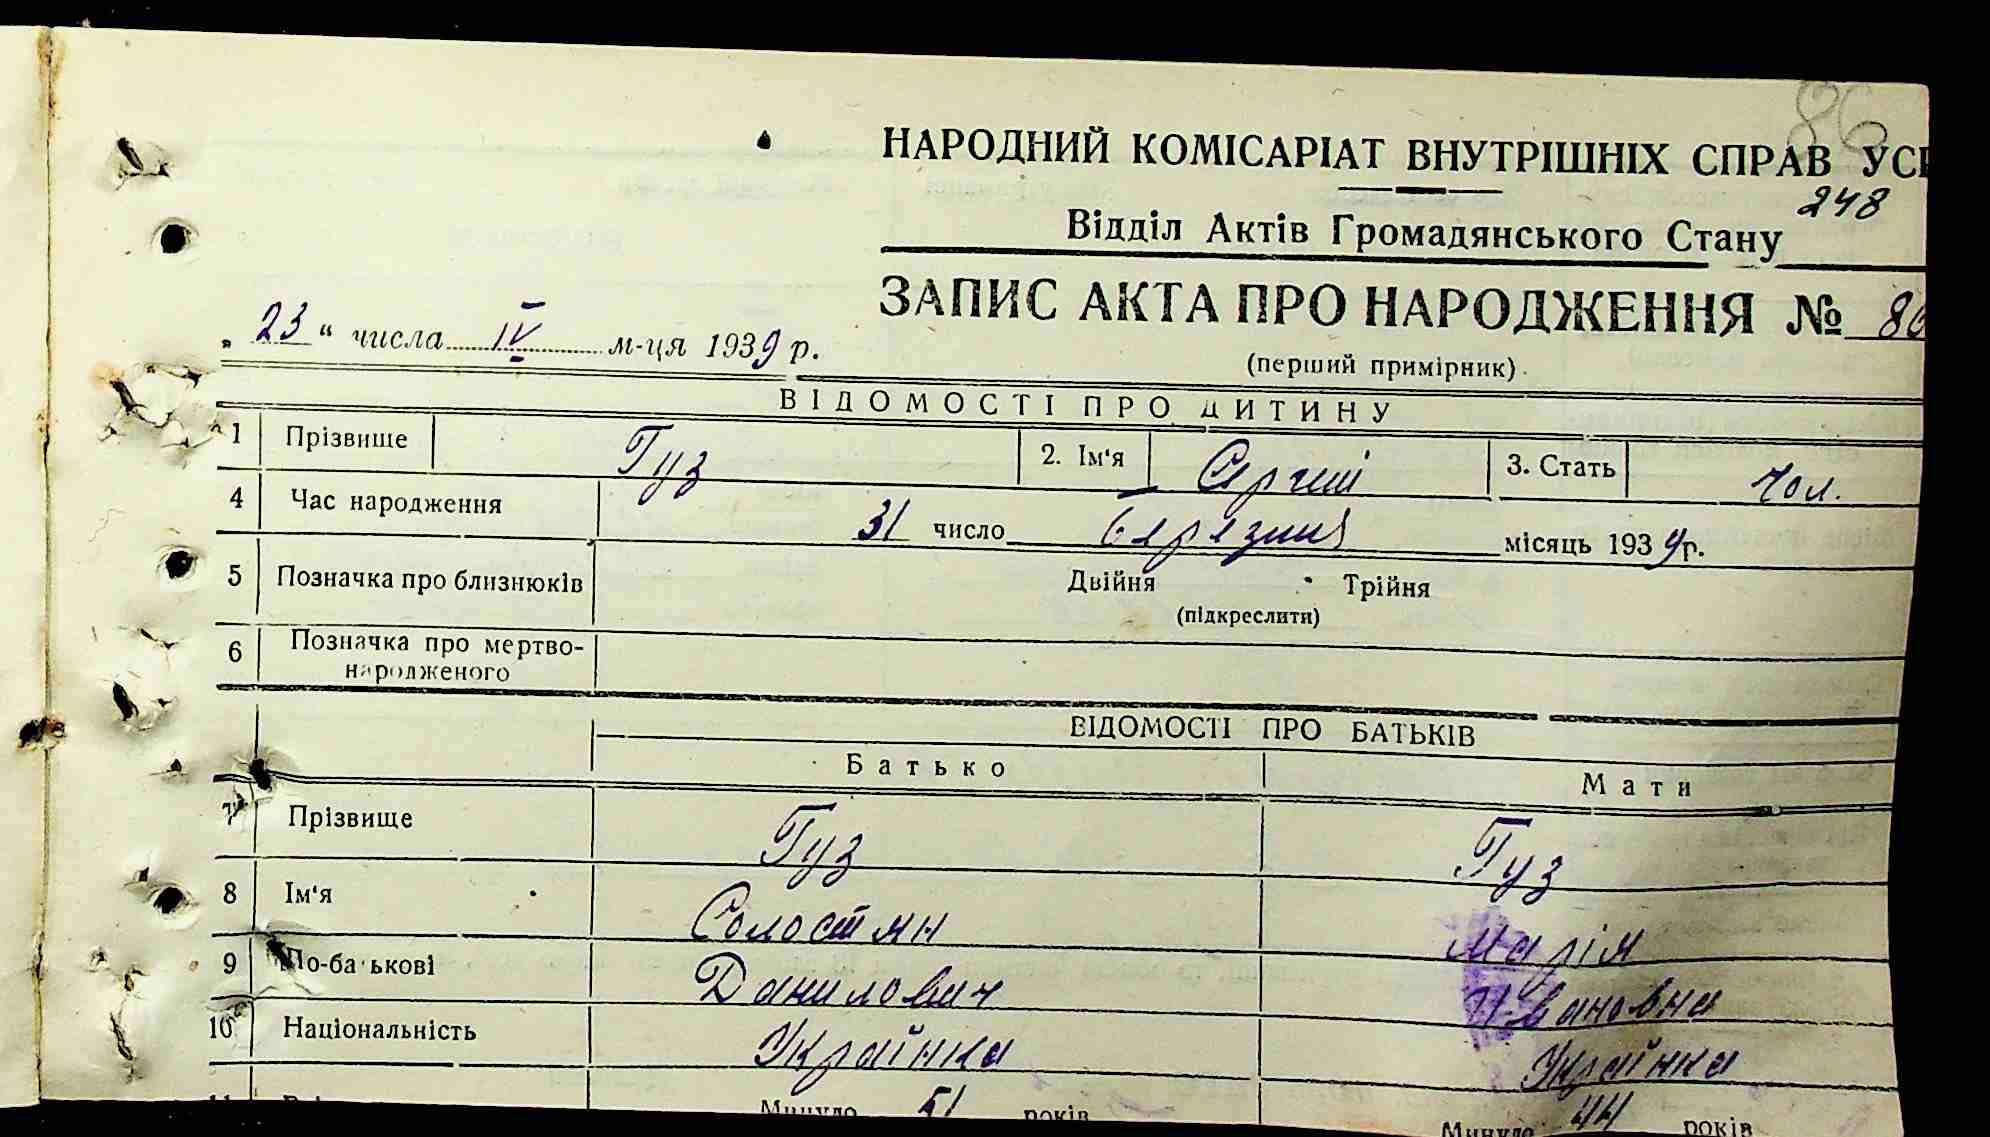 86
НАРОДНИЙ КОМІСАРІАТ ВНУТРІШНІХ СПРАВ УСР
248
Відділ Актів Громадянського Стану
ЗАПИС АКТА ПРО НАРОДЖЕННЯ № 86
„23“ числа IV м-ця 1939 р.
(перший примірник)
ВІДОМОСТІ ПРО ДИТИНУ
1 Прізвище Гуз 2. Ім'я Сергій 3. Стать Чол.
4 Час народження 31 число березня місяць 1939р.
5 Позначка про близнюків Двійня Трійня
(підкреслити)
6 Позначка про мертво-
народженого
ВІДОМОСТІ ПРО БАТЬКІВ
Батько Мати
7 Прізвище Гуз Гуз
8 Ім'я Солостян Марія
9 По-батькові Данилович Ивановна
10 Національність Українка Українка
11 Минуло 51 років Минуло 44 років